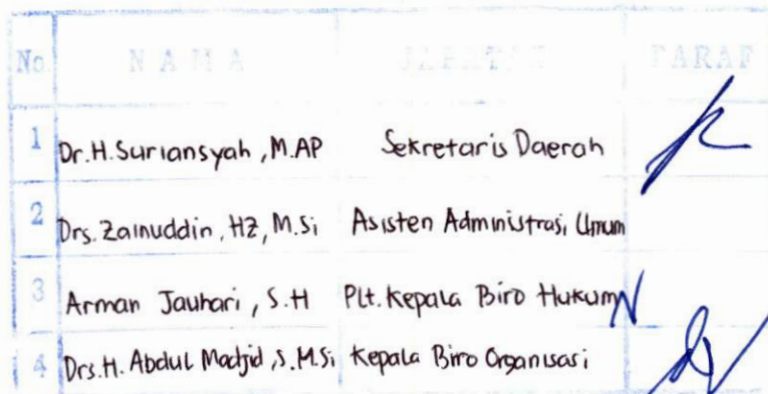 No NAMA JABATAN PARAF
1 Dr.H.Suriansyah, M.AP Sekretaris Daerah
2 Drs.Zainuddin, HZ, M.Si Asisten Administrasi Umum
3 Arman Jauhari, S.H Plt.Kepala Biro Hukum
4 Drs.H. Abdul Madjid, S.M.Si Kepala Biro Organisasi